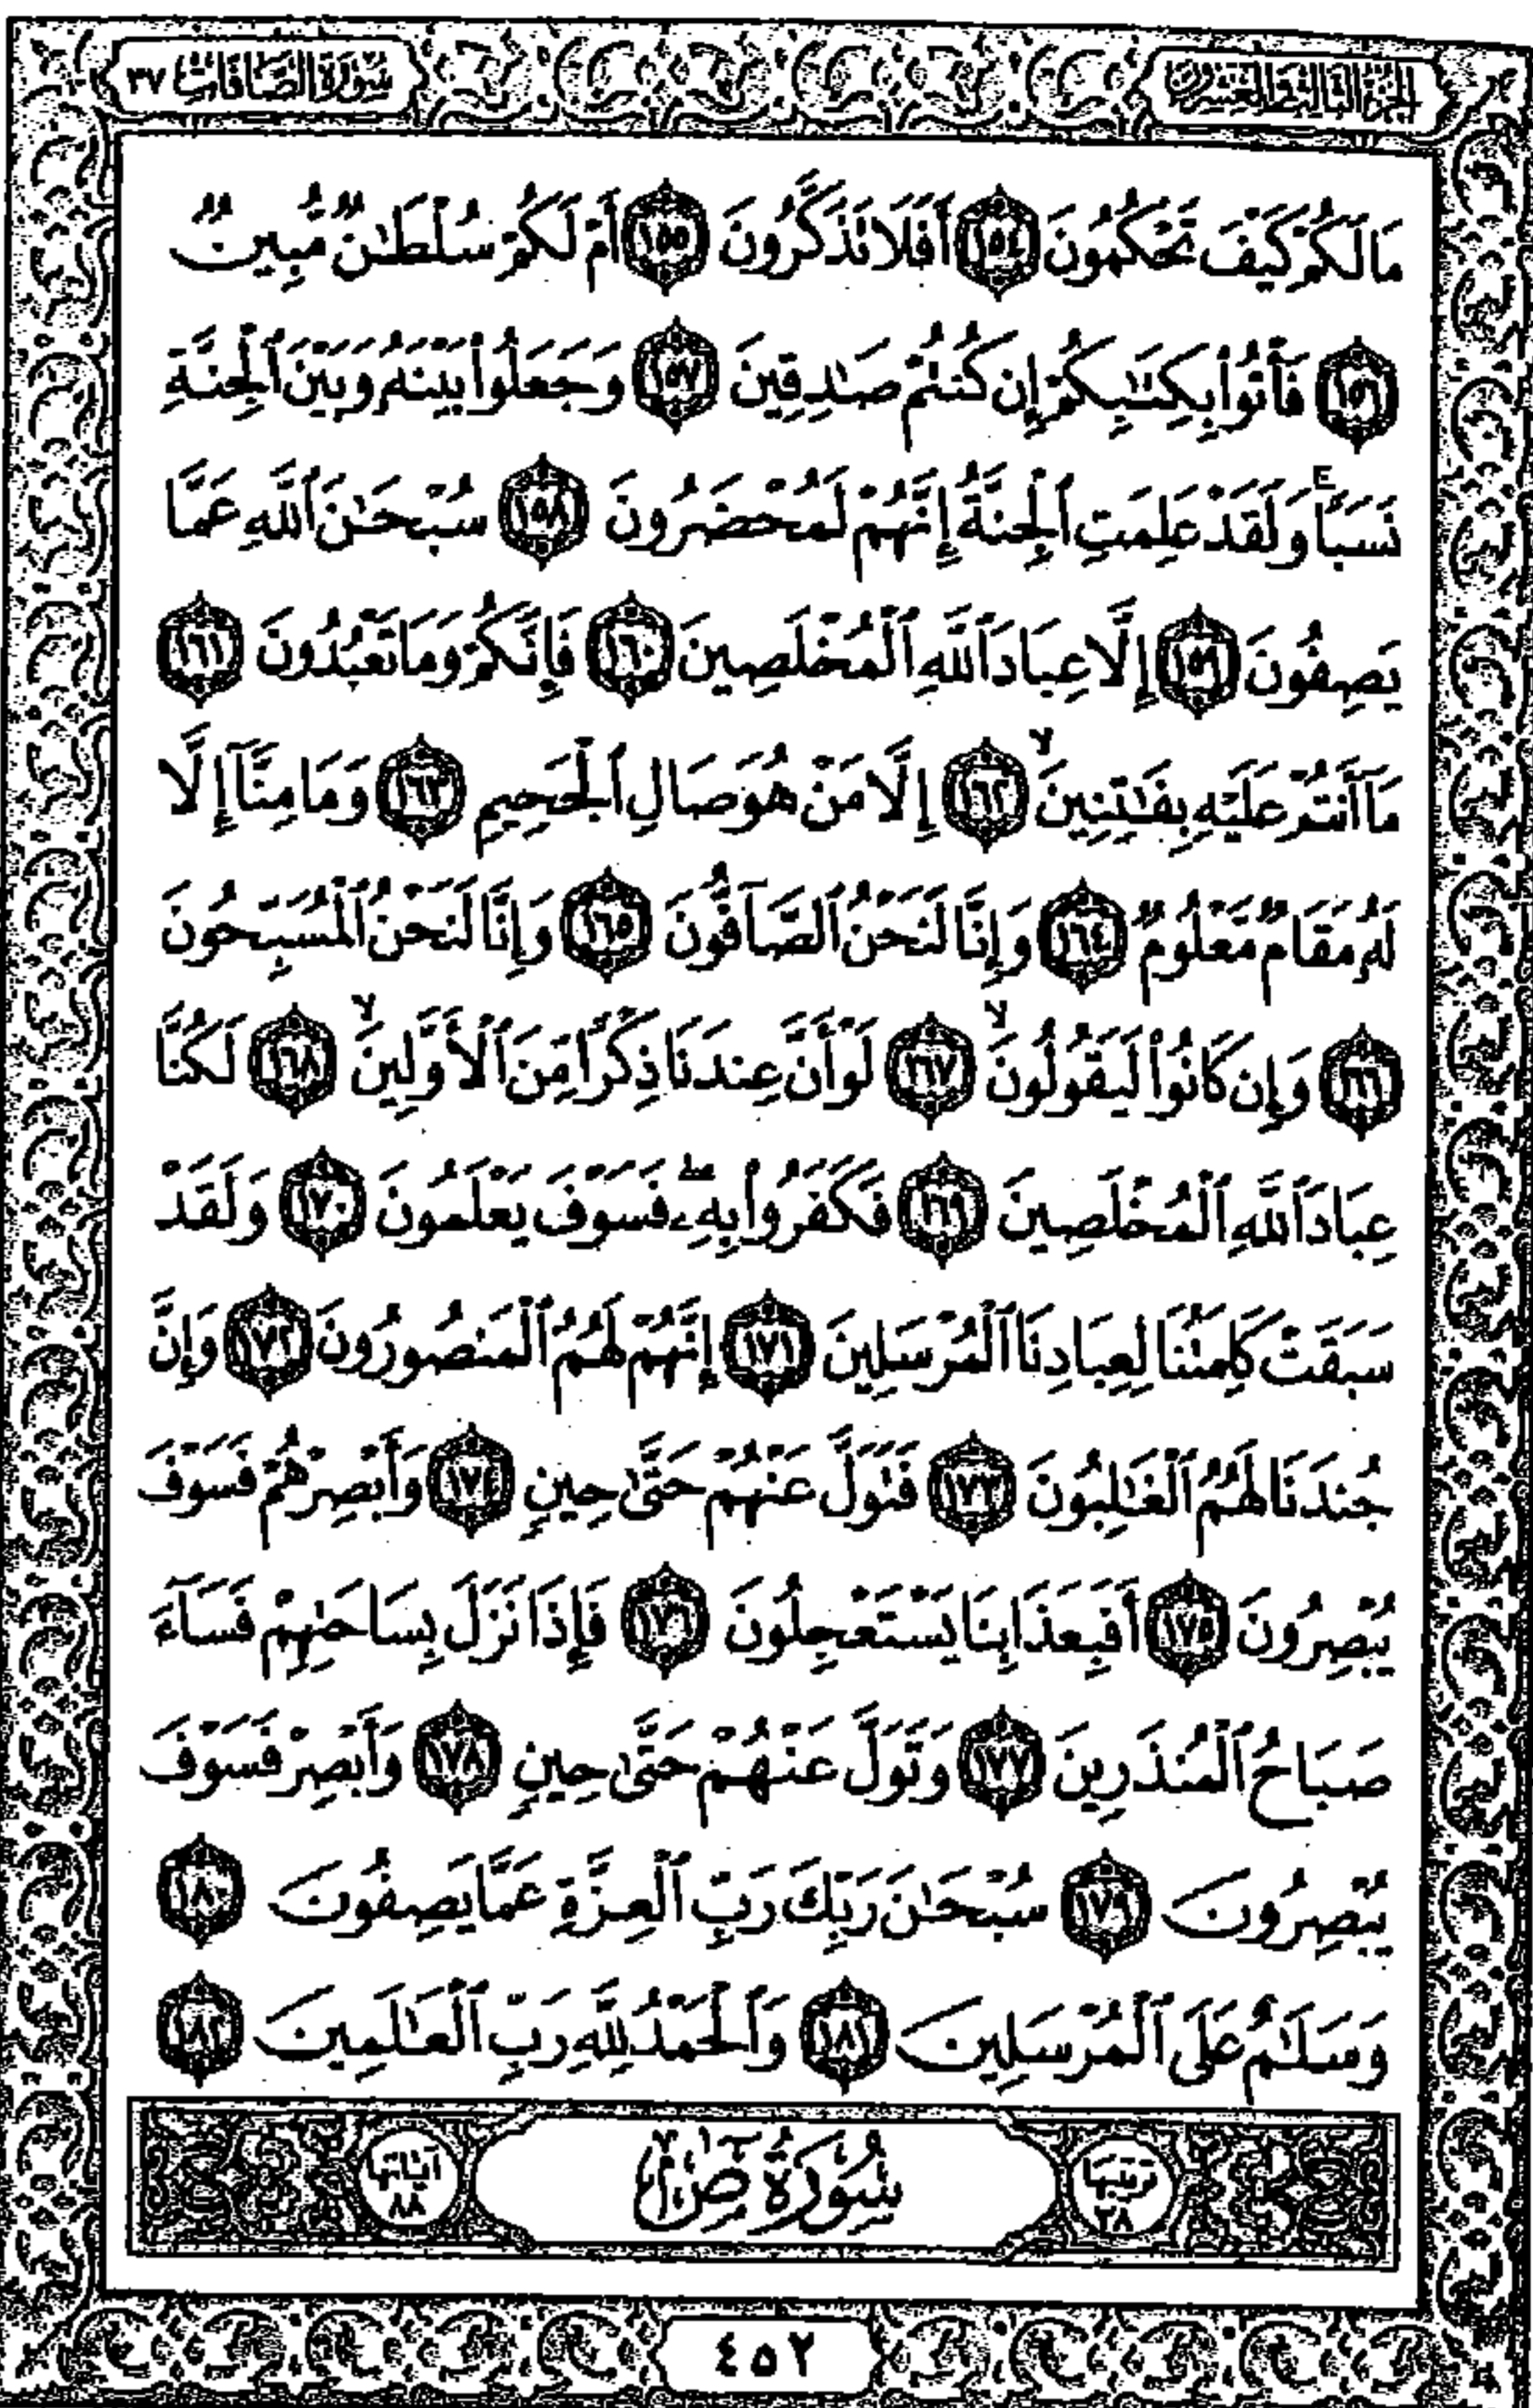 الجزء الثالث والعشرون
سورة الصافات ٣٧
مَا لَكُمْ كَيْفَ تَحْكُمُونَ ١٥٤ أَفَلَا تَذَكَّرُونَ ١٥٥ أَمْ لَكُمْ سُلْطَٰنٌ مُّبِينٌ
١٥٦ فَأْتُوا۟ بِكِتَٰبِكُمْ إِن كُنتُمْ صَٰدِقِينَ ١٥٧ وَجَعَلُوا۟ بَيْنَهُۥ وَبَيْنَ ٱلْجِنَّةِ
نَسَبًا ۚ وَلَقَدْ عَلِمَتِ ٱلْجِنَّةُ إِنَّهُمْ لَمُحْضَرُونَ ١٥٨ سُبْحَٰنَ ٱللَّهِ عَمَّا
يَصِفُونَ ١٥٩ إِلَّا عِبَادَ ٱللَّهِ ٱلْمُخْلَصِينَ ١٦٠ فَإِنَّكُمْ وَمَا تَعْبُدُونَ ١٦١
مَآ أَنتُمْ عَلَيْهِ بِفَٰتِنِينَ ۙ ١٦٢ إِلَّا مَنْ هُوَ صَالِ ٱلْجَحِيمِ ١٦٣ وَمَا مِنَّآ إِلَّا
لَهُۥ مَقَامٌ مَّعْلُومٌ ١٦٤ وَإِنَّا لَنَحْنُ ٱلصَّآفُّونَ ١٦٥ وَإِنَّا لَنَحْنُ ٱلْمُسَبِّحُونَ
١٦٦ وَإِن كَانُوا۟ لَيَقُولُونَ ۙ ١٦٧ لَوْ أَنَّ عِندَنَا ذِكْرًا مِّنَ ٱلْأَوَّلِينَ ۙ ١٦٨ لَكُنَّا
عِبَادَ ٱللَّهِ ٱلْمُخْلَصِينَ ١٦٩ فَكَفَرُوا۟ بِهِۦ ۖ فَسَوْفَ يَعْلَمُونَ ١٧٠ وَلَقَدْ
سَبَقَتْ كَلِمَتُنَا لِعِبَادِنَا ٱلْمُرْسَلِينَ ١٧١ إِنَّهُمْ لَهُمُ ٱلْمَنصُورُونَ ١٧٢ وَإِنَّ
جُندَنَا لَهُمُ ٱلْغَٰلِبُونَ ١٧٣ فَتَوَلَّ عَنْهُمْ حَتَّىٰ حِينٍ ١٧٤ وَأَبْصِرْهُمْ فَسَوْفَ
يُبْصِرُونَ ١٧٥ أَفَبِعَذَابِنَا يَسْتَعْجِلُونَ ١٧٦ فَإِذَا نَزَلَ بِسَاحَتِهِمْ فَسَآءَ
صَبَاحُ ٱلْمُنذَرِينَ ١٧٧ وَتَوَلَّ عَنْهُمْ حَتَّىٰ حِينٍ ١٧٨ وَأَبْصِرْ فَسَوْفَ
يُبْصِرُونَ ١٧٩ سُبْحَٰنَ رَبِّكَ رَبِّ ٱلْعِزَّةِ عَمَّا يَصِفُونَ ١٨٠
وَسَلَٰمٌ عَلَى ٱلْمُرْسَلِينَ ١٨١ وَٱلْحَمْدُ لِلَّهِ رَبِّ ٱلْعَٰلَمِينَ ١٨٢
ترتيبها
٣٨
سُورَةُ صٓ
آياتها
٨٨
٤٥٢